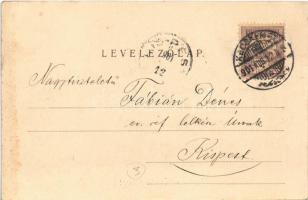 LEVELEZŐ-LAP.
Nagytiszteletű
Fábián Dénes
ev. ref. lelkész úrnak
Kispest